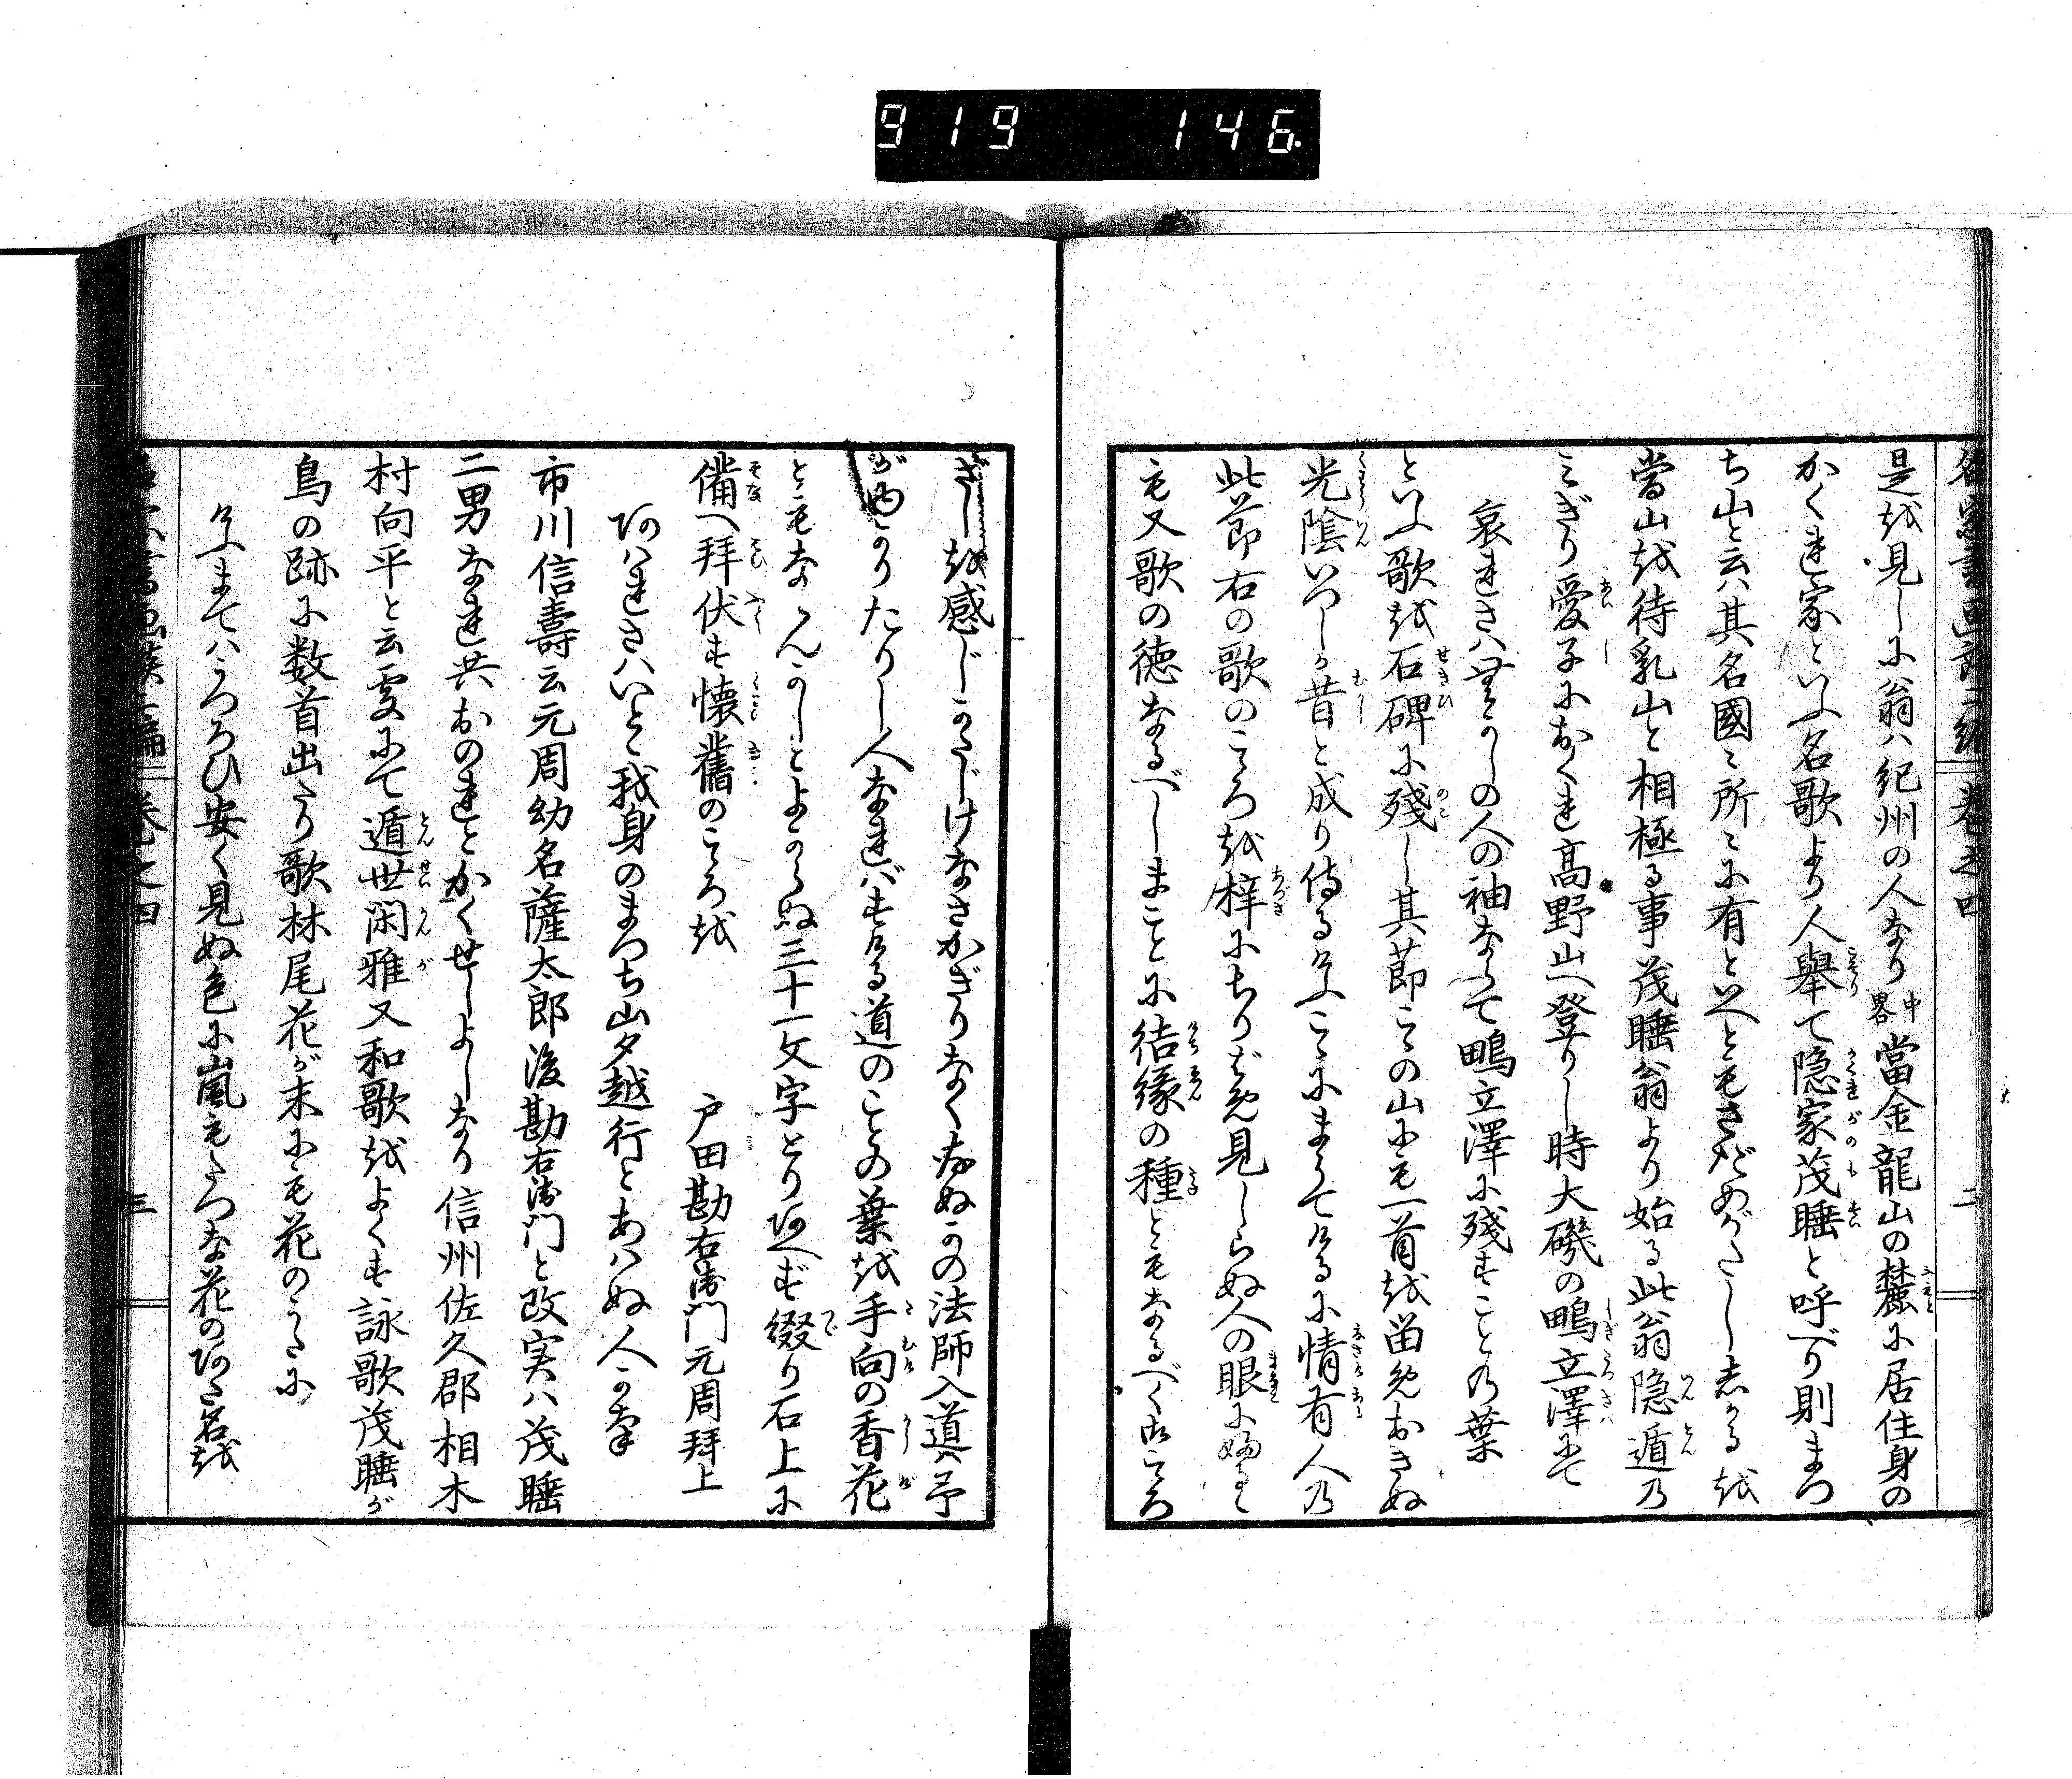 919 146.
是を見しに翁ハ紀州の人なり中畧當金龍山の麓に居住身の
かくれ家といふ名歌より人舉て隠家茂睡と呼べり則まつ
ち山と云ハ其名國々所々に有といへともさだめがたししかるを
當山を待乳山と相極る事茂睡翁より始る此翁隠遁乃
みぎり愛子におくれ高野山へ登りし時大磯の鴫立澤にて
哀れさハ なしの人の袖なくて鴫立澤に殘すことの葉
といふ歌を石碑に殘し其節この山にも一首を留めおきぬ
光陰いつしか昔と成り侍るけふこゝにまうてけるに情有人乃
此節右の歌のこゝろを梓にちりばめ見しらぬ人の眼に ると
も又歌の徳なるべしまことに結縁の種ともなるべく こゝろ
ざしを感じかたじけなさかぎりなく なぬかの法師入道ハ予
が かりたりし人なれバすける道のことの葉を手向の香花
ともなくんかしとよからぬ三十一文字とりあへず綴り石上に
備へ拜伏す懐舊のこゝろを 戸田勘右衛門元周拜上
あハれさハいとゝ我身のまつち山夕越行とあハぬ人かな
市川信壽云元周幼名薩太郎後勘右衛門と改実ハ茂睡
二男なれ共おのれとかくせしよしなり信州佐久郡相木
村向平と云處にて遁世閑雅又和歌をよくす詠歌茂睡が
鳥の跡に数首出たり歌林尾花が末にも花のうたに
けふまてハうつろひ安く見ぬ色に嵐もたつな花のあた名を
三